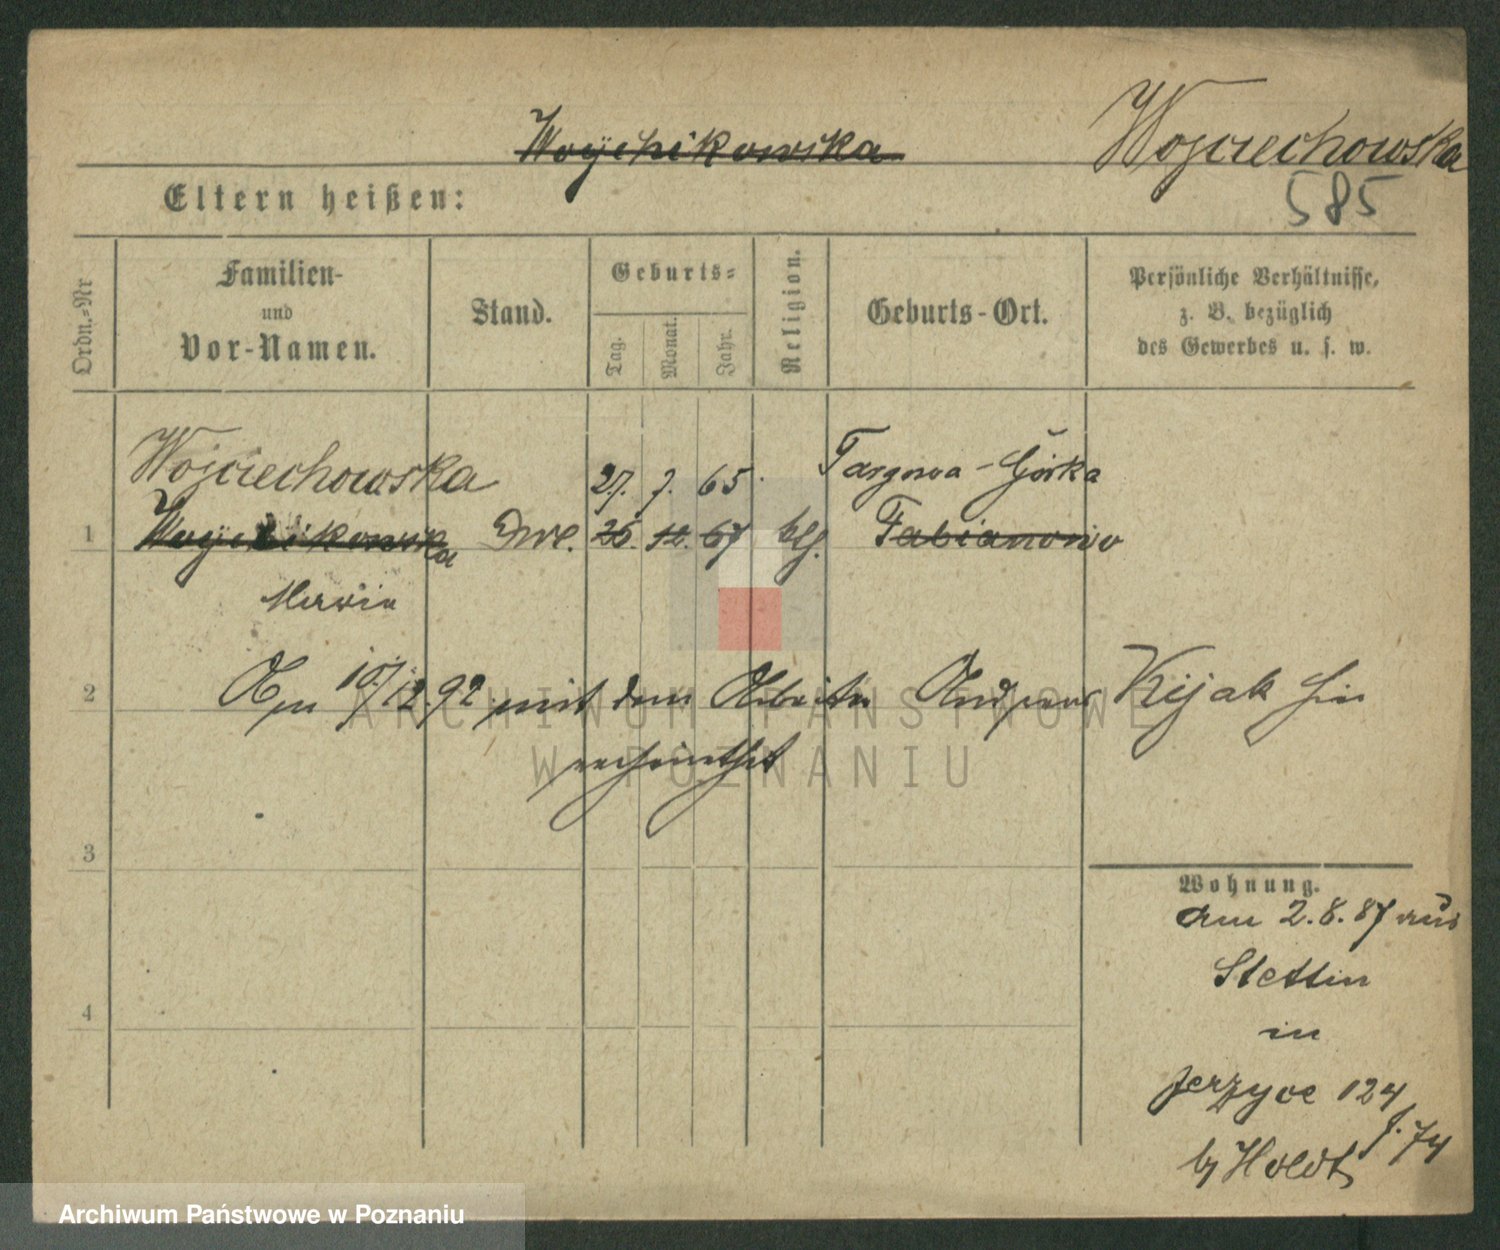 Woÿchikowska Wojciechowska
585
Eltern heißen:
Ordn.-Nr
Familien-
und
Vor-Namen.
Stand.
Geburts-
Tag.
Monat.
Jahr.
Religion.
Geburts-Ort.
Persönliche Verhältnisse,
z. B. bezüglich
des Gewerbes u. s. w.
Wojciechowska 27. 7. 65. Targowa-Górka
1 Woÿchikowska 26. 12. 67 Fabianowo
Marie
2 Am 10/12.92 mit dem Arbeiter Andreas Kijak hier
verheirathet
3
4
Wohnung.
am 2.8.87 aus
Stettin
in
Jerzyce 124
J. 74
by Holdt
ARCHIWUM PAŃSTWOWE
W POZNANIU
Archiwum Państwowe w Poznaniu